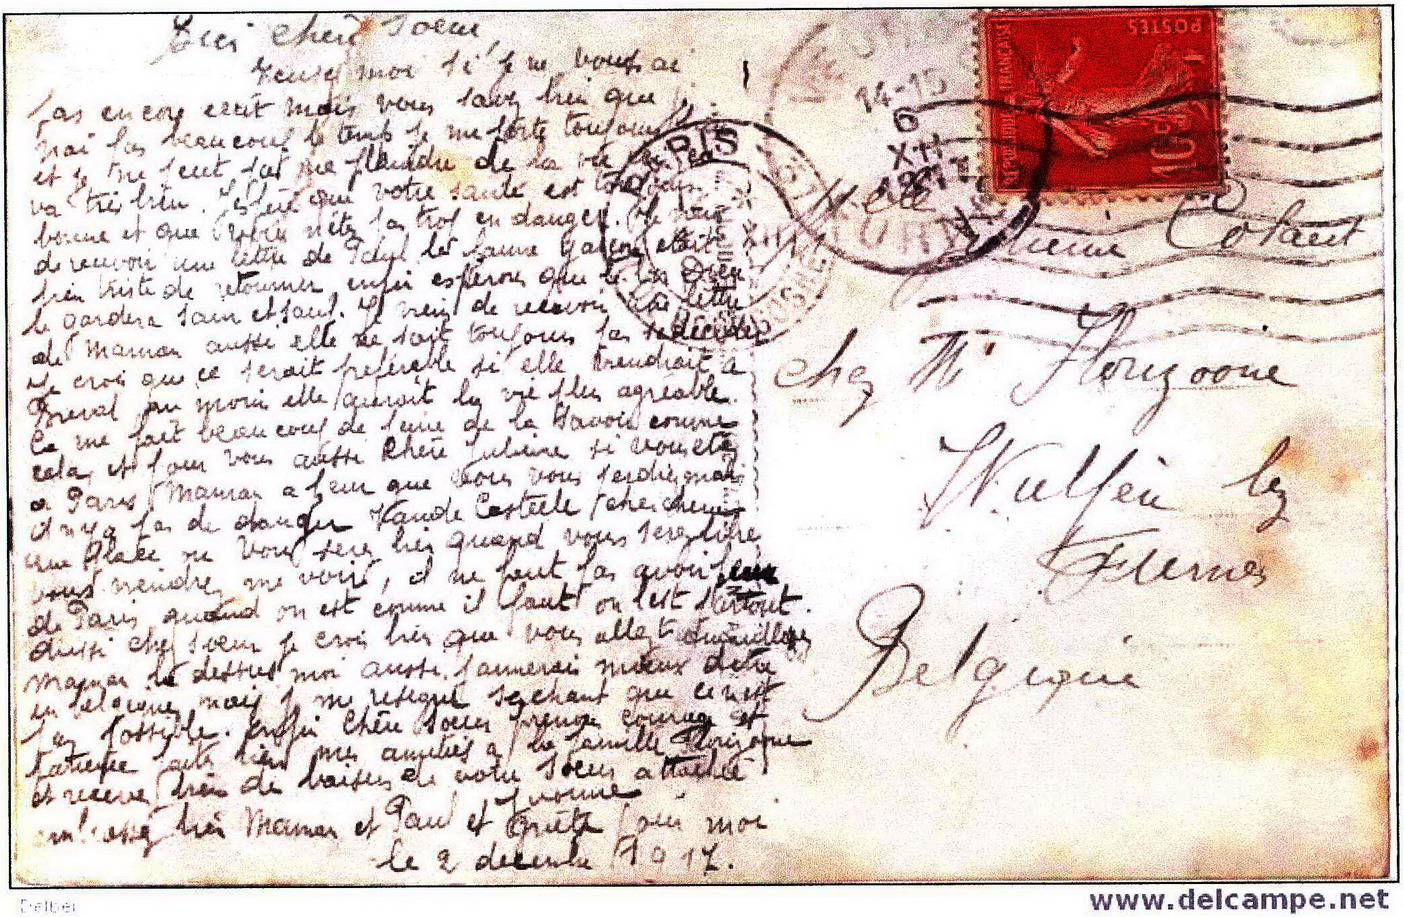 chère Soeur
moi si je ne vous ai
pas encore écrit mais vous savez bien que
n'ai pas beaucoup le temps je me porte toujours
et je ne peut pas me plaindre de la vie
va très bien. J'espère que votre santé est toujours
bonne et que vous n'êtes pas trop en danger. Je
de recevoir une lettre de le jeune garçon était
bien triste de retourner enfin esperons que le bon Dieu
le gardera sain et sauf. Je viens de recevoir une lettre
de Maman aussi elle ne sait toujours pas se décider
Je crois que ce serait préférable si elle viendrait a
Breval au moin elle aurait la vie plus agreable.
Ca me fait beaucoup de peine de la savoir comme
cela, et pour vous aussi Chère si vous étés
a Paris Maman a peur que vous vous
il n'y a pas de danger chercherais
une Place ou vous serez bien quand vous serez libre
vous viendrez me voire, il ne faut pas avoir peur
de Paris quand on est comme il faut on l'est partout.
aussi cher soeur je crois bien que vous allez
Maman la dessus moi aussi j'aimerai mieux d'etre
en Belgique mais je me resigne sachant que ce n'est
pas possible. Enfin Chère Soeur prenez courage et
patience faits bien mes amitiés a la famille Florizoone
et recevez bien de baisers de votre Soeur attachée
Yvonne
embrassez bien Maman et Paul et pour moi
le 2 decembre 1917.
PARIS
14-15
6
XII
VEURNE
FURNES
RÉPUBLIQUE FRANÇAISE
POSTES
10c
Melle
Colaert
chez Mr Florizoone
Wulpen lez
Furnes
Belgique
Delbei
www.delcampe.net